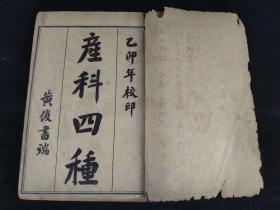 乙卯年校印
產科四種
黃俊書端